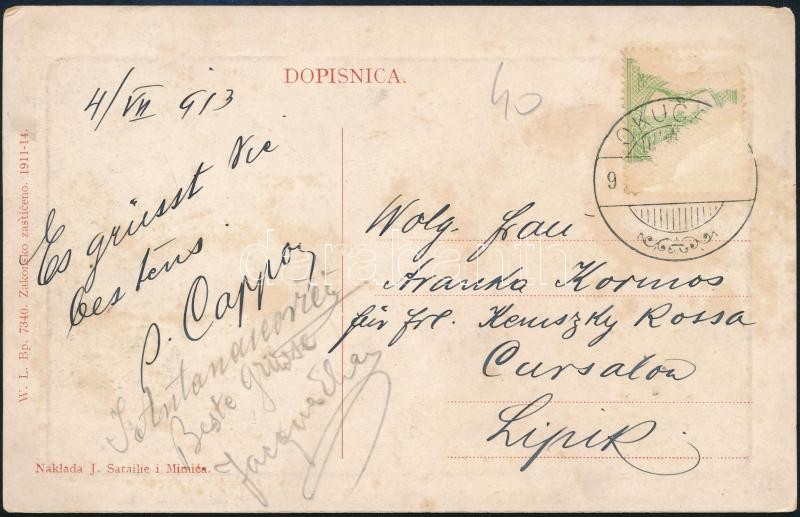 DOPISNICA.
40
4/VII 913
OKUČ
9
Es grüsst Sie
bestens
Wolg. Frau
Aranka Kormos
für Frl. Rossa
Cursalon
Lipik
Beste Grüsse
W. L. Bp. 7340. Zakonsko zastićeno. 1911-14.
Naklada J. Sarailie i Mimića.
darabanth